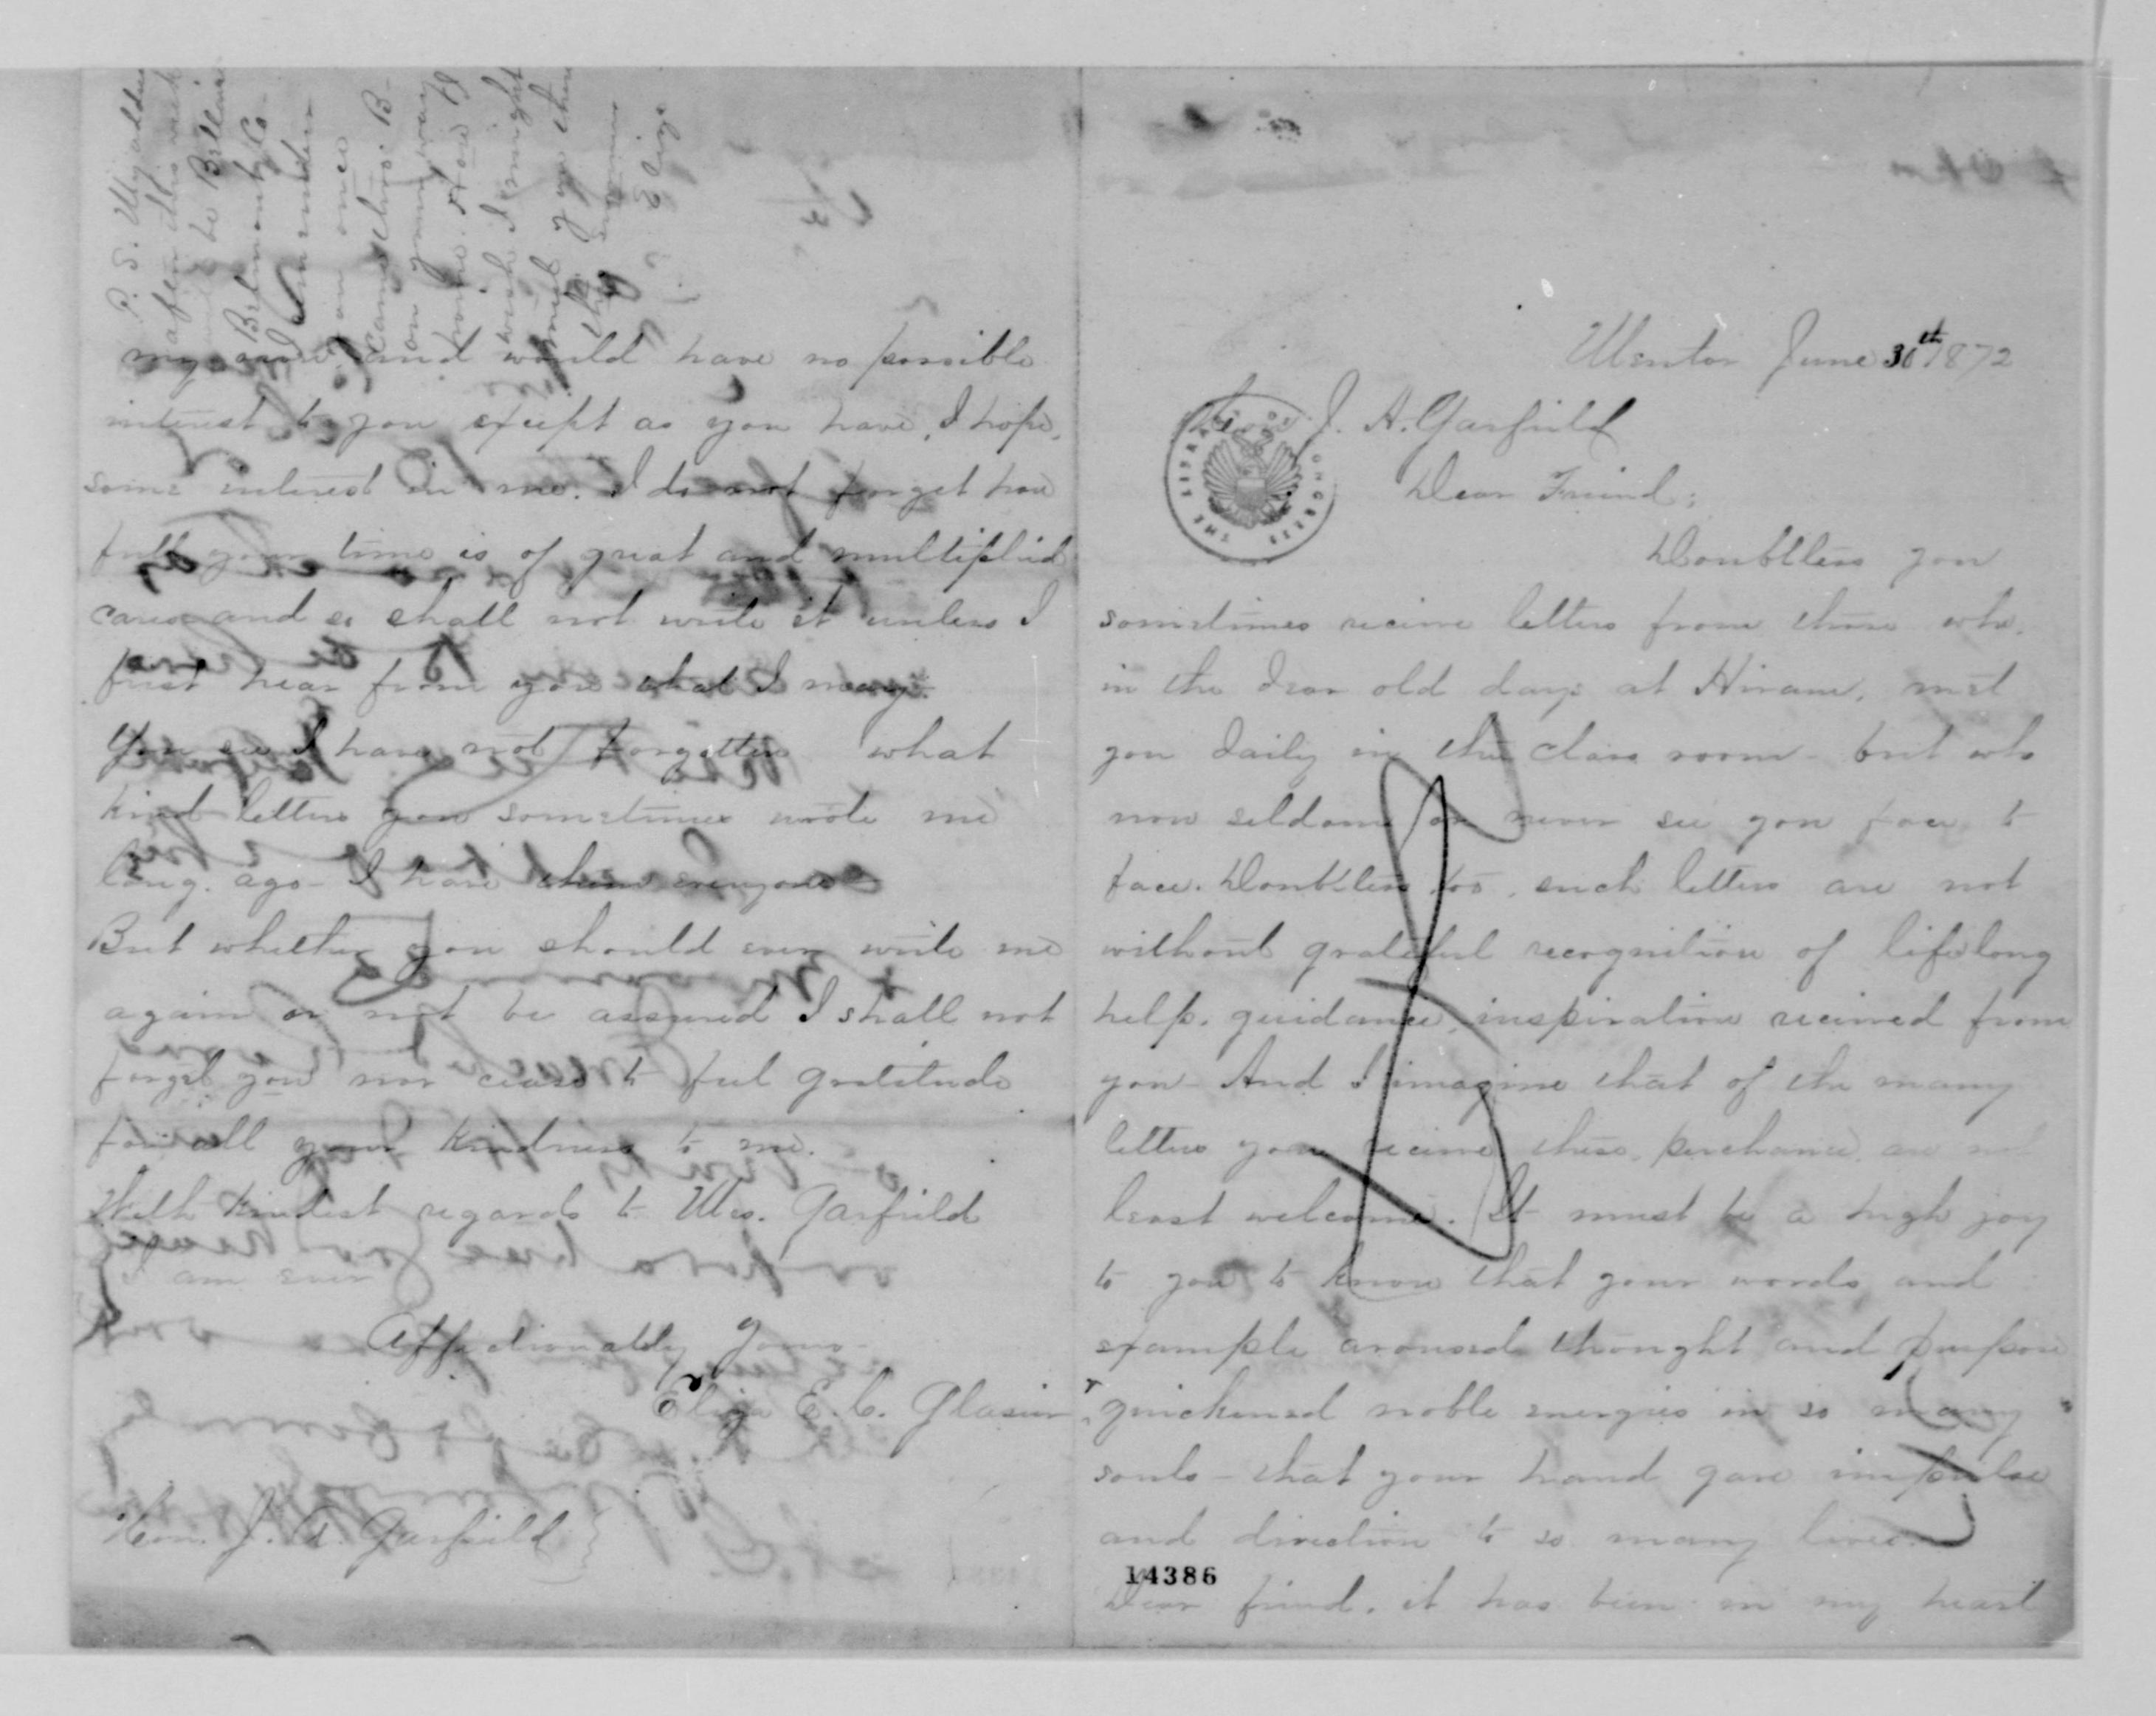 Mentor June 30th 1872
Hon. J. A. Garfield
Dear Friend;
Doubtless you
sometimes receive letters from those who,
in the dear old days at Hiram, met
you daily in the class room - but who
now seldom or never see you face to
face. Doubtless too, such letters are not
without grateful recognition of lifelong
help, guidance, inspiration received from
you - And I imagine that of the many
letters you receive these, perchance, are not
least welcome. It must be a high joy
to you to know that your words and
example aroused thought and purpose
quickened noble energies in so many
souls - that your hand gave impulse
and direction to so many lives.
Dear friend, it has been in my heart
14386
my and would have no possible
interest to you except as you have, I hope,
some interest in me. I do not forget how
full your time is of great and multiplied
cares and so shall not write it unless I
first hear from you that I may.
You see I have not forgotten what
kind letters you sometimes wrote me
long ago - I have them everyone
But whether you should ever write me
again or not be assured I shall not
forget you nor cease to feel gratitude
for all your kindness to me.
With kindest regards to Mrs. Garfield
I am ever
Affectionately yours
Eliza E. C. Glasier
Hon. J. A. Garfield
P. S. My address
after this week
will be Bellaire
Belmont Co.
I
you once
came to B-
on your way
home. How I
wish I might
meet you there
this summer
Eliza
THE LIBRARY OF CONGRESS